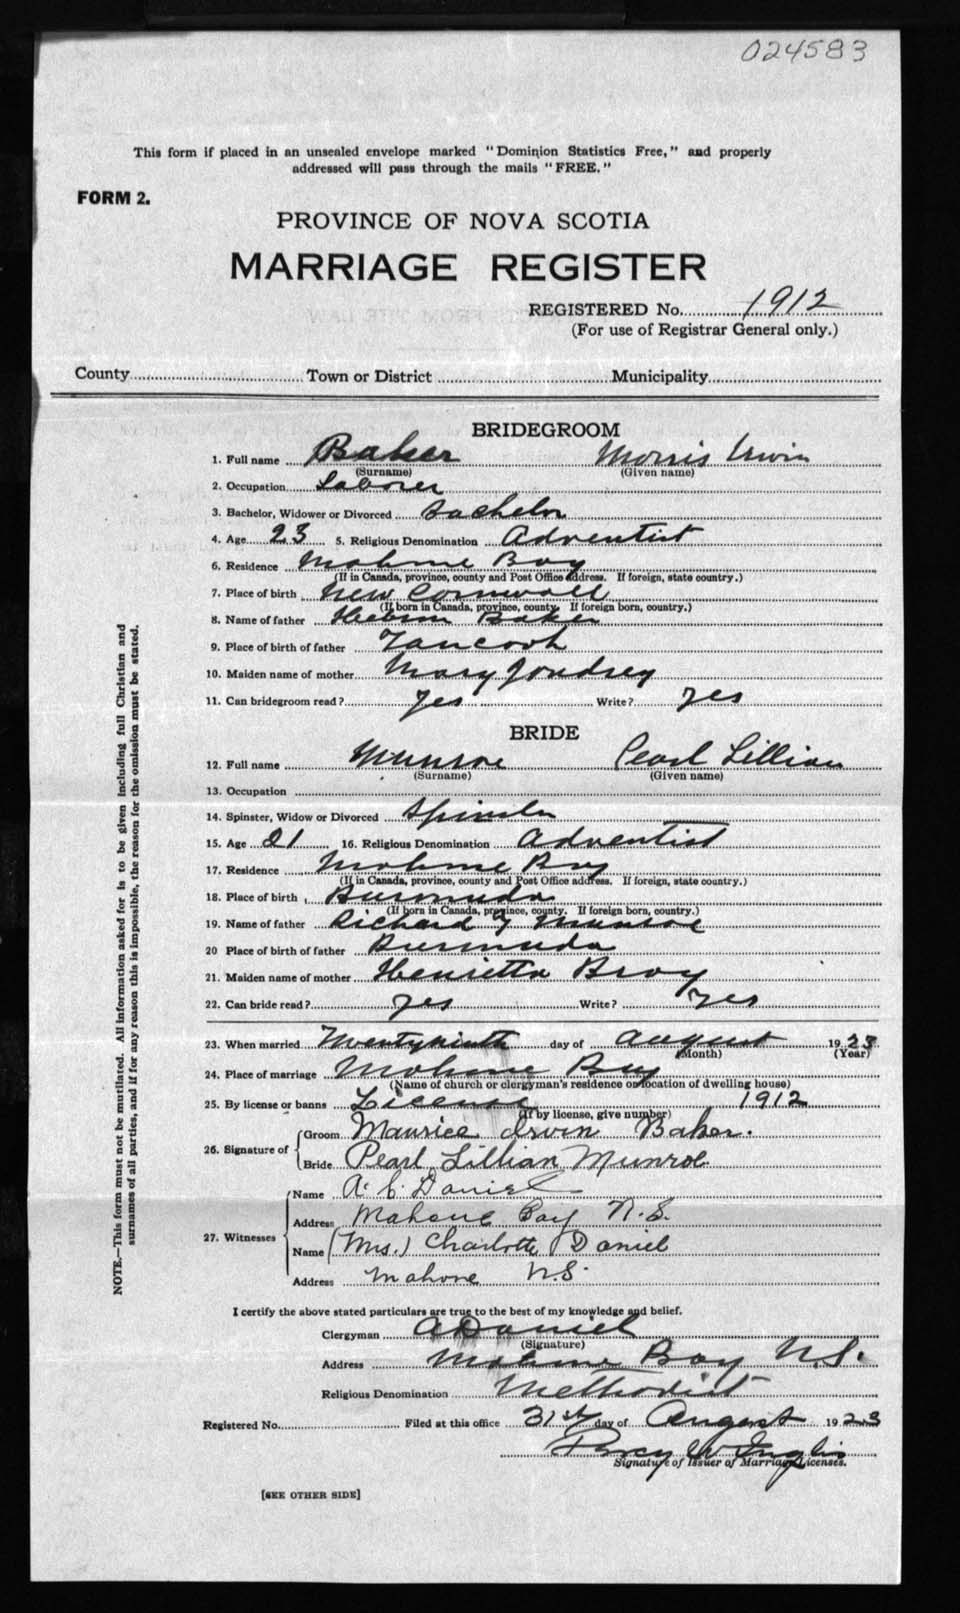 024583
This form if placed in an unsealed envelope marked "Dominion Statistics Free," and properly
addressed will pass through the mails "FREE."
FORM 2.
PROVINCE OF NOVA SCOTIA
MARRIAGE REGISTER
REGISTERED No. 1912
(For use of Registrar General only.)
County Town or District Municipality
BRIDEGROOM
1. Full name Baker Morris Irwin
(Surname) (Given name)
2. Occupation Laborer
3. Bachelor, Widower or Divorced Bachelor
4. Age 23 5. Religious Denomination Adventist
6. Residence Mahone Bay
(If in Canada, province, county and Post Office address. If foreign, state country.)
7. Place of birth New Cornwall
(If born in Canada, province, county. If foreign born, country.)
8. Name of father Baker
9. Place of birth of father Tancook
10. Maiden name of mother Mary Joudrey
11. Can bridegroom read? Yes Write? Yes
BRIDE
12. Full name Munroe Pearl Lillian
(Surname) (Given name)
13. Occupation
14. Spinster, Widow or Divorced Spinster
15. Age 21 16. Religious Denomination Adventist
17. Residence Mahone Bay
(If in Canada, province, county and Post Office address. If foreign, state country.)
18. Place of birth Bermuda
(If born in Canada, province, county. If foreign born, country.)
19. Name of father Richard J Munroe
20 Place of birth of father Bermuda
21. Maiden name of mother Henrietta Bray
22. Can bride read? Yes Write? Yes
23. When married Twentyninth day of August 1923
(Month) (Year)
24. Place of marriage Mahone Bay
(Name of church or clergyman's residence or location of dwelling house)
25. By license or banns License 1912
(If by license, give number)
26. Signature of Groom Maurice Irvin Baker.
Bride Pearl Lillian Munroe
27. Witnesses Name A. C. Daniel
Address Mahone Bay N.S.
Name (Mrs.) Charlotte Daniel
Address Mahone N.S.
I certify the above stated particulars are true to the best of my knowledge and belief.
Clergyman A Daniel
(Signature)
Address Mahone Bay N.S.
Religious Denomination Methodist
Registered No. Filed at this office 31st day of August 1923
Percy W Inglis
Signature of Issuer of Marriage Licenses.
[SEE OTHER SIDE]
NOTE.—This form must not be mutilated. All information asked for is to be given including full Christian and
surnames of all parties, and if for any reason this is impossible, the reason for the omission must be stated.